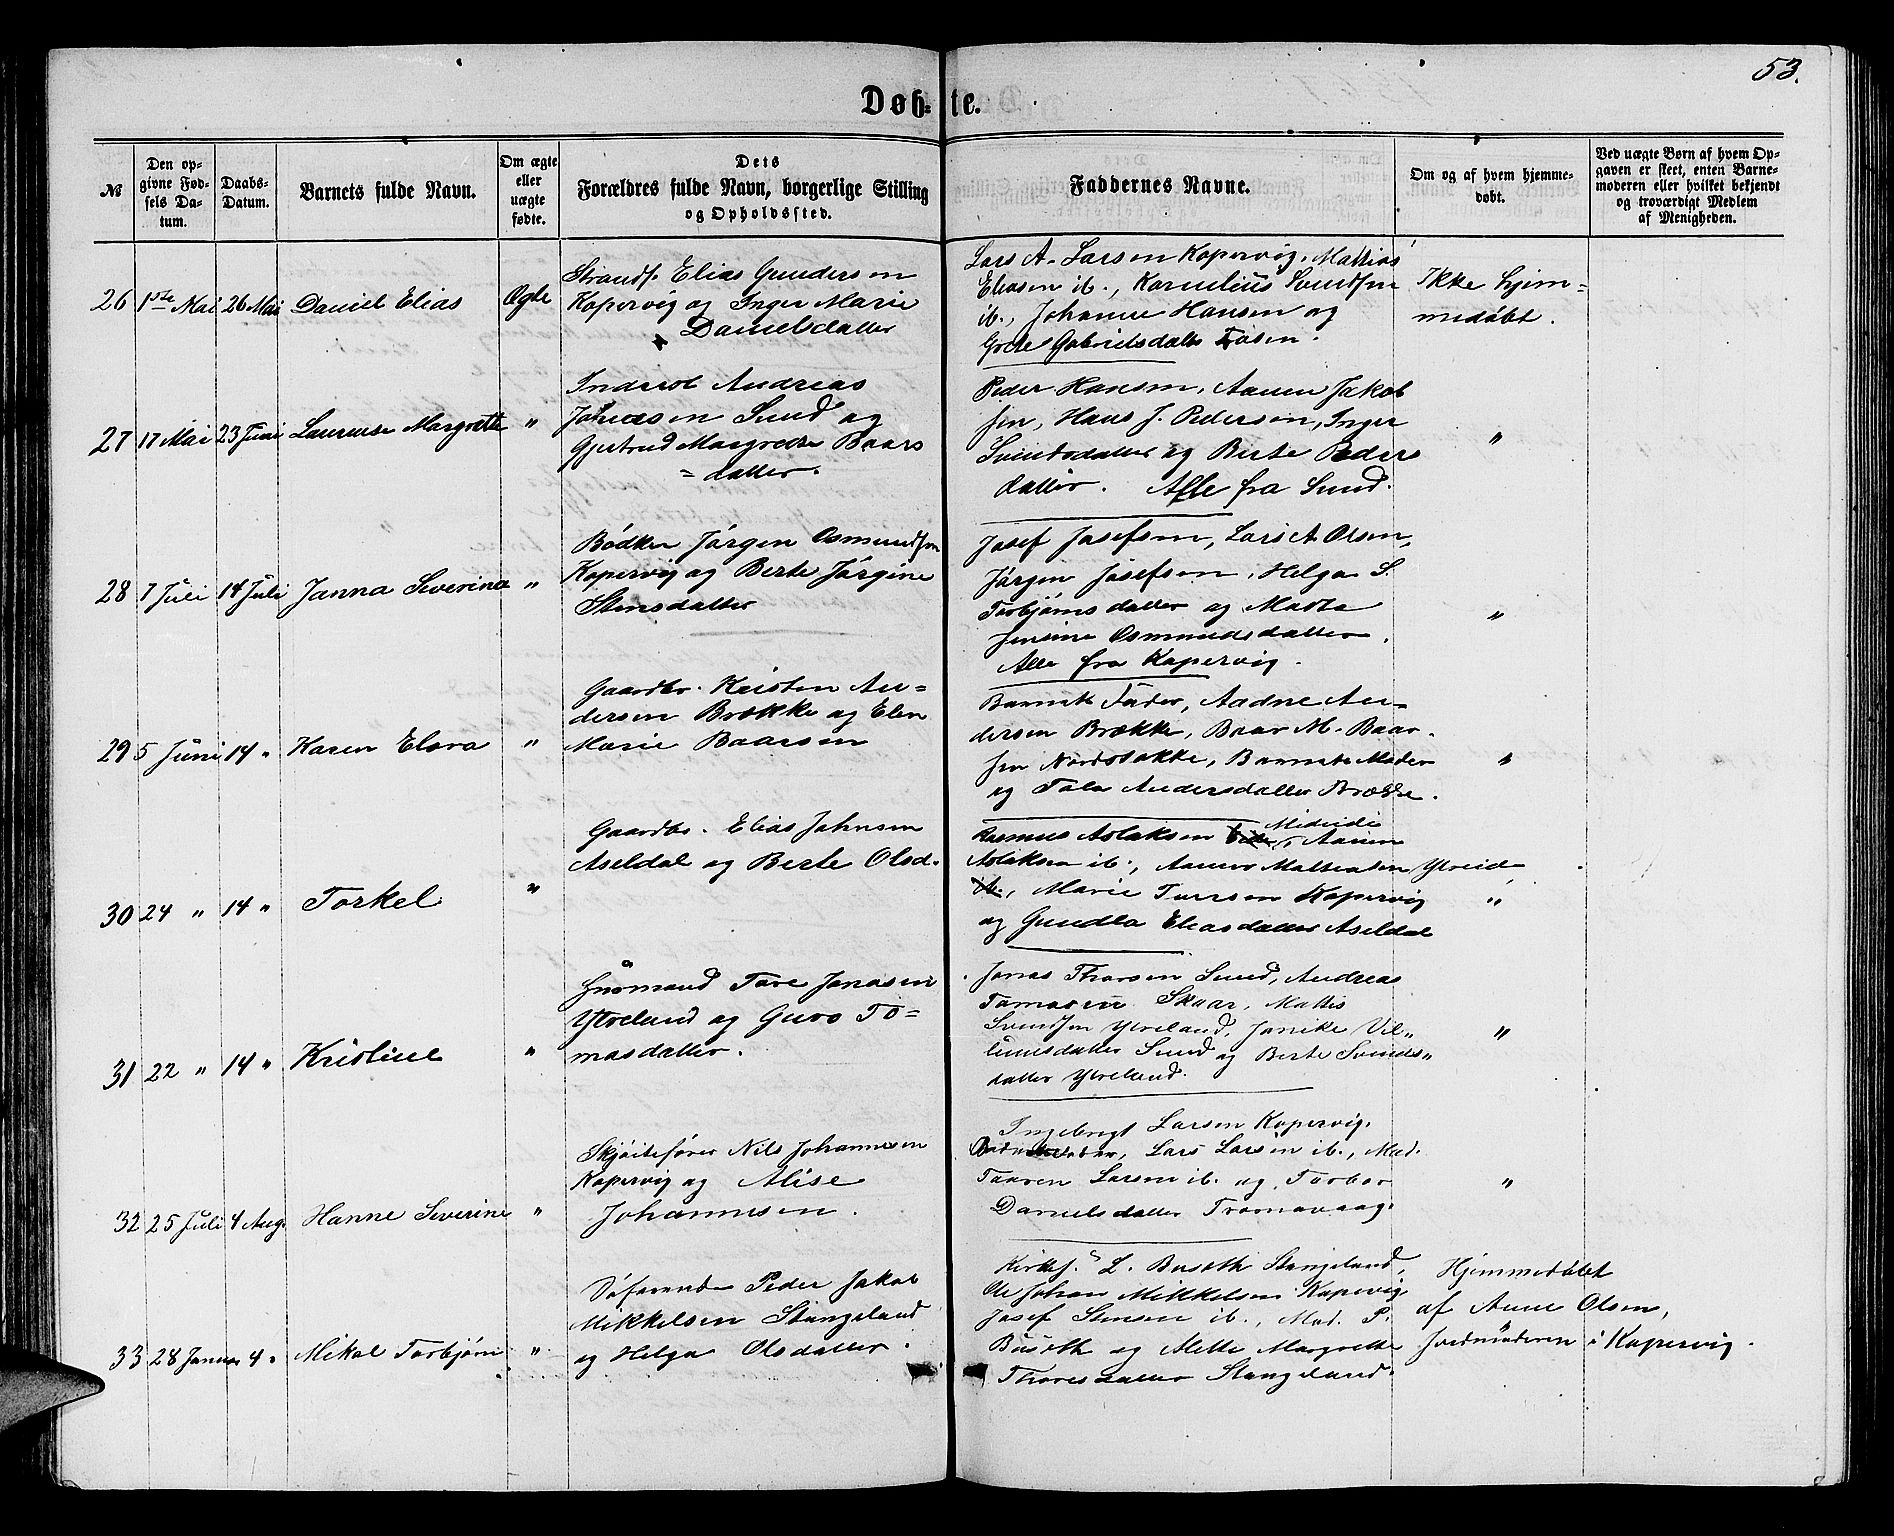 53.
Døb-te.
№
Den opgivne Fødsels Datum.
Daabs-Datum.
Barnets fulde Navn.
Om ægte eller uægte fødte.
Dets Forældres fulde Navn, borgerlige Stilling og Opholdssted.
Faddernes Navne.
Om og af hvem hjemmedøbt.
Ved uægte Børn af hvem Opgaven er skeet, enten Barnemoderen eller hvilket bekjendt og troværdigt Medlem af Menigheden.
26 1ste Mai 26 Mai Daniel Elias Ægte
Strandf. Elias Gundersen
Kopervig og Inger Marie
Danielsdatter
Lars A. Larsen Kopervig, Mattias
Eliasen ib., Kornelius Svendsen
ib., Johanne Hansen og
Grete Gabrielsdatter
Ikke hjem=
medøbt.
27 17 Mai 23 Juni Laurense Margrette "
Inderst Andreas
Johnsen Sund og
Gjertrud Margrethe Baars
=datter.
Peder Hansen, Aanen Jakob
sen, Hans J. Pedersen, Inger
Svendsdatter og Berte Peders
datter. Alle fra Sund.
"
28 7 Juli 14 Juli Janna Severina "
Bødker Jørgen Osmundsen
Kopervig og Berte Jørgine
Stensdatter
Josef Josefsen, Lars A Olsen,
Jørgen Josefsen, Helga S.
Torbjørnsdatter og Marta
Jensine Osmundsdatter.
Alle fra Kopervig.
"
29 5 Juni 14 " Karen Elevra "
Gaardbr. Kristen An=
dersen Brække og Elen
Marie Baarsen
Barnets Fader, Aadne An=
dersen Brække, Baar M. Baar-
sen Nordstokke, Barnets Moder
og Tala Andersdatter Brække.
"
30 24 " 14 " Torkel "
Gaardbr. Elias Johnsen
Aseldal og Berte Olsd.
Midteide
Rasmus Aslaksen, Aanen
Aslaksen ib., Aanen Mattiasen Ytreide
ib., Marie Iversen Kopervig
og Gundla Eliasdatter Aseldal
"
31 22 " 14 " Kristine "
Husmand Tore Jonasen
Ytreland og Guro To=
masdatter.
Jonas Thorsen Sund, Andreas
Tomasen Skaar, Mattis
Svendsen Ytreland, Janike Vil=
lumsdatter Sund og Berte Svends=
datter Ytreland.
"
32 25 Juli 4 Aug. Hanne Severine "
Skjøitefører Nils Johannesen
Kopervig og Alise
Johannesen.
Ingebregt Larsen Kopervig.
Lars Larsen ib., Mad.
Taaren Larsen ib. og Torbor
Danielsdatter Tromavaag.
"
33 28 Januar 4 " Mikal Torbjørn "
Søfarende Peder Jakob
Mikkelsen Stangeland
og Helga Olsdatter.
Kirks. L. Buseth Stangeland,
Ole Johan Mikkelsen Kopervig
Josef Stensen ib., Mad. P.
Buseth og Mette Margrette
Thoresdatter Stangeland.
Hjemmedøbt
af Anne Olsen,
Jordmoderen i Kopervig.